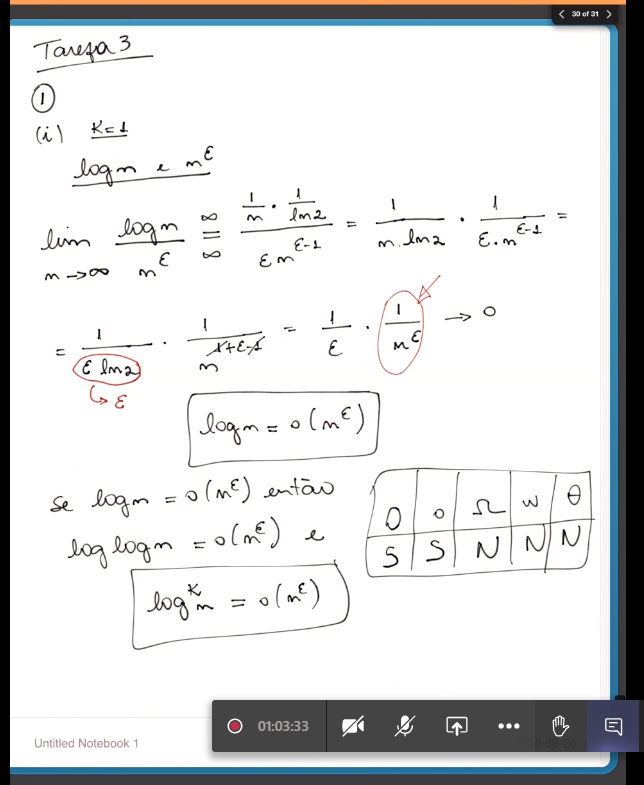 < 30 of 31 >
Tarefa 3
①
(i) K=1
log n e n^ε
lim n→∞ log n / n^ε = ∞/∞ (1/n · 1/ln2) / (ε n^(ε-1)) = 1/(n.ln2) · 1/(ε.n^(ε-1)) =
= 1/(ε ln2) · 1/n^(1+ε-1) = 1/ε · 1/n^ε → 0
↳ ε
log n = o(n^ε)
Se log n = o(n^ε) então
log log n = o(n^ε) e
log^k n = o(n^ε)
O o Ω w θ
S S N N N
01:03:33
Untitled Notebook 1